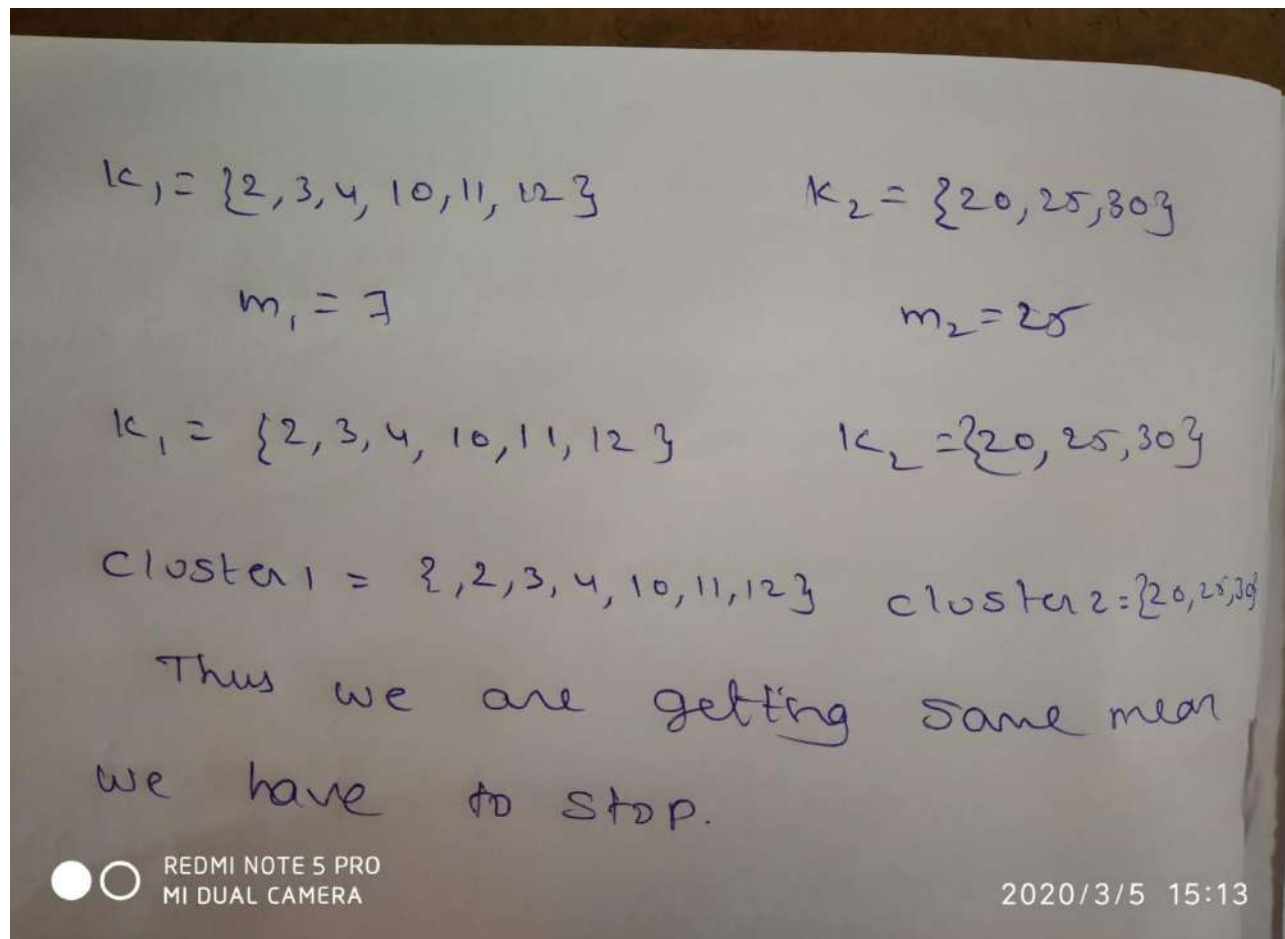 K₁ = {2, 3, 4, 10, 11, 12} K₂ = {20, 25, 30}
m₁ = 7 m₂ = 25
K₁ = {2, 3, 4, 10, 11, 12} K₂ = {20, 25, 30}
Cluster 1 = {, 2, 3, 4, 10, 11, 12} cluster 2 = {20, 25, 30}
Thus we are getting same mean
we have to stop.
REDMI NOTE 5 PRO
MI DUAL CAMERA 2020/3/5 15:13